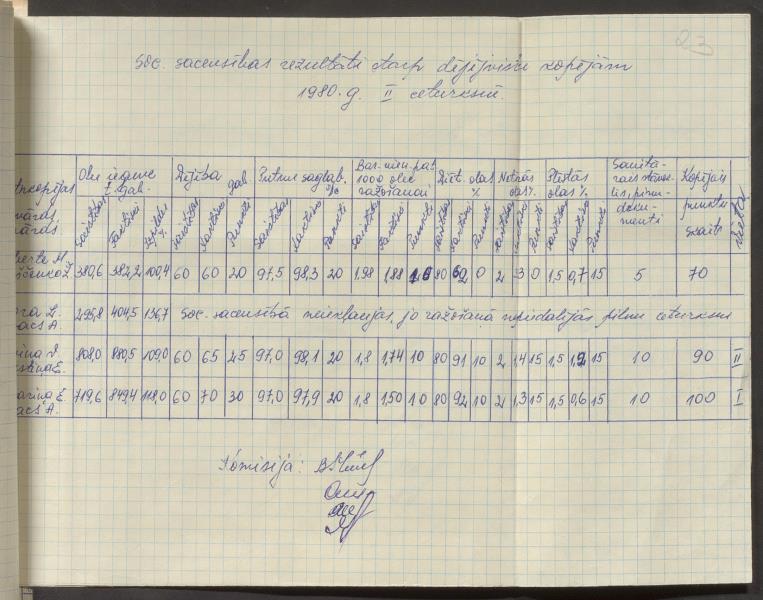 23
Soc. sacensības rezultāti starp dējējvistu kopējām
1980.g. II ceturksnī.
Olu ieguve t. gab. Dējība gab Putnu saglab. % 1000 olu ražošanai Diēt. olas % Netīrās olas % Plīstās olas % Sanitārais stāvoklis, dokumenti Kopējais punktu skaits Vieta
Saistības Faktiski Izpilde % Saistības Faktiski Punkti Saistības Faktiski Punkti Saistības Faktiski Punkti Saistības Faktiski Punkti Saistības Faktiski Punkti Saistības Faktiski Punkti
380,6 382,2 100,4 60 60 20 97,5 98,3 20 1,98 1,88 10 80 62 0 2 3 0 1,5 0,7 15 5 70
295,8 404,5 136,7 Soc. sacensībā neiekļaujas, jo ražošanā nepiedalījās pilnu ceturksni
808,0 880,5 109,0 60 65 25 97,0 98,1 20 1,8 1,74 10 80 91 10 2 1,4 15 1,5 1,2 15 10 90 II
719,6 849,4 118,0 60 70 30 97,0 97,9 20 1,8 1,50 10 80 92 10 2 1,3 15 1,5 0,6 15 10 100 I
Komisija: